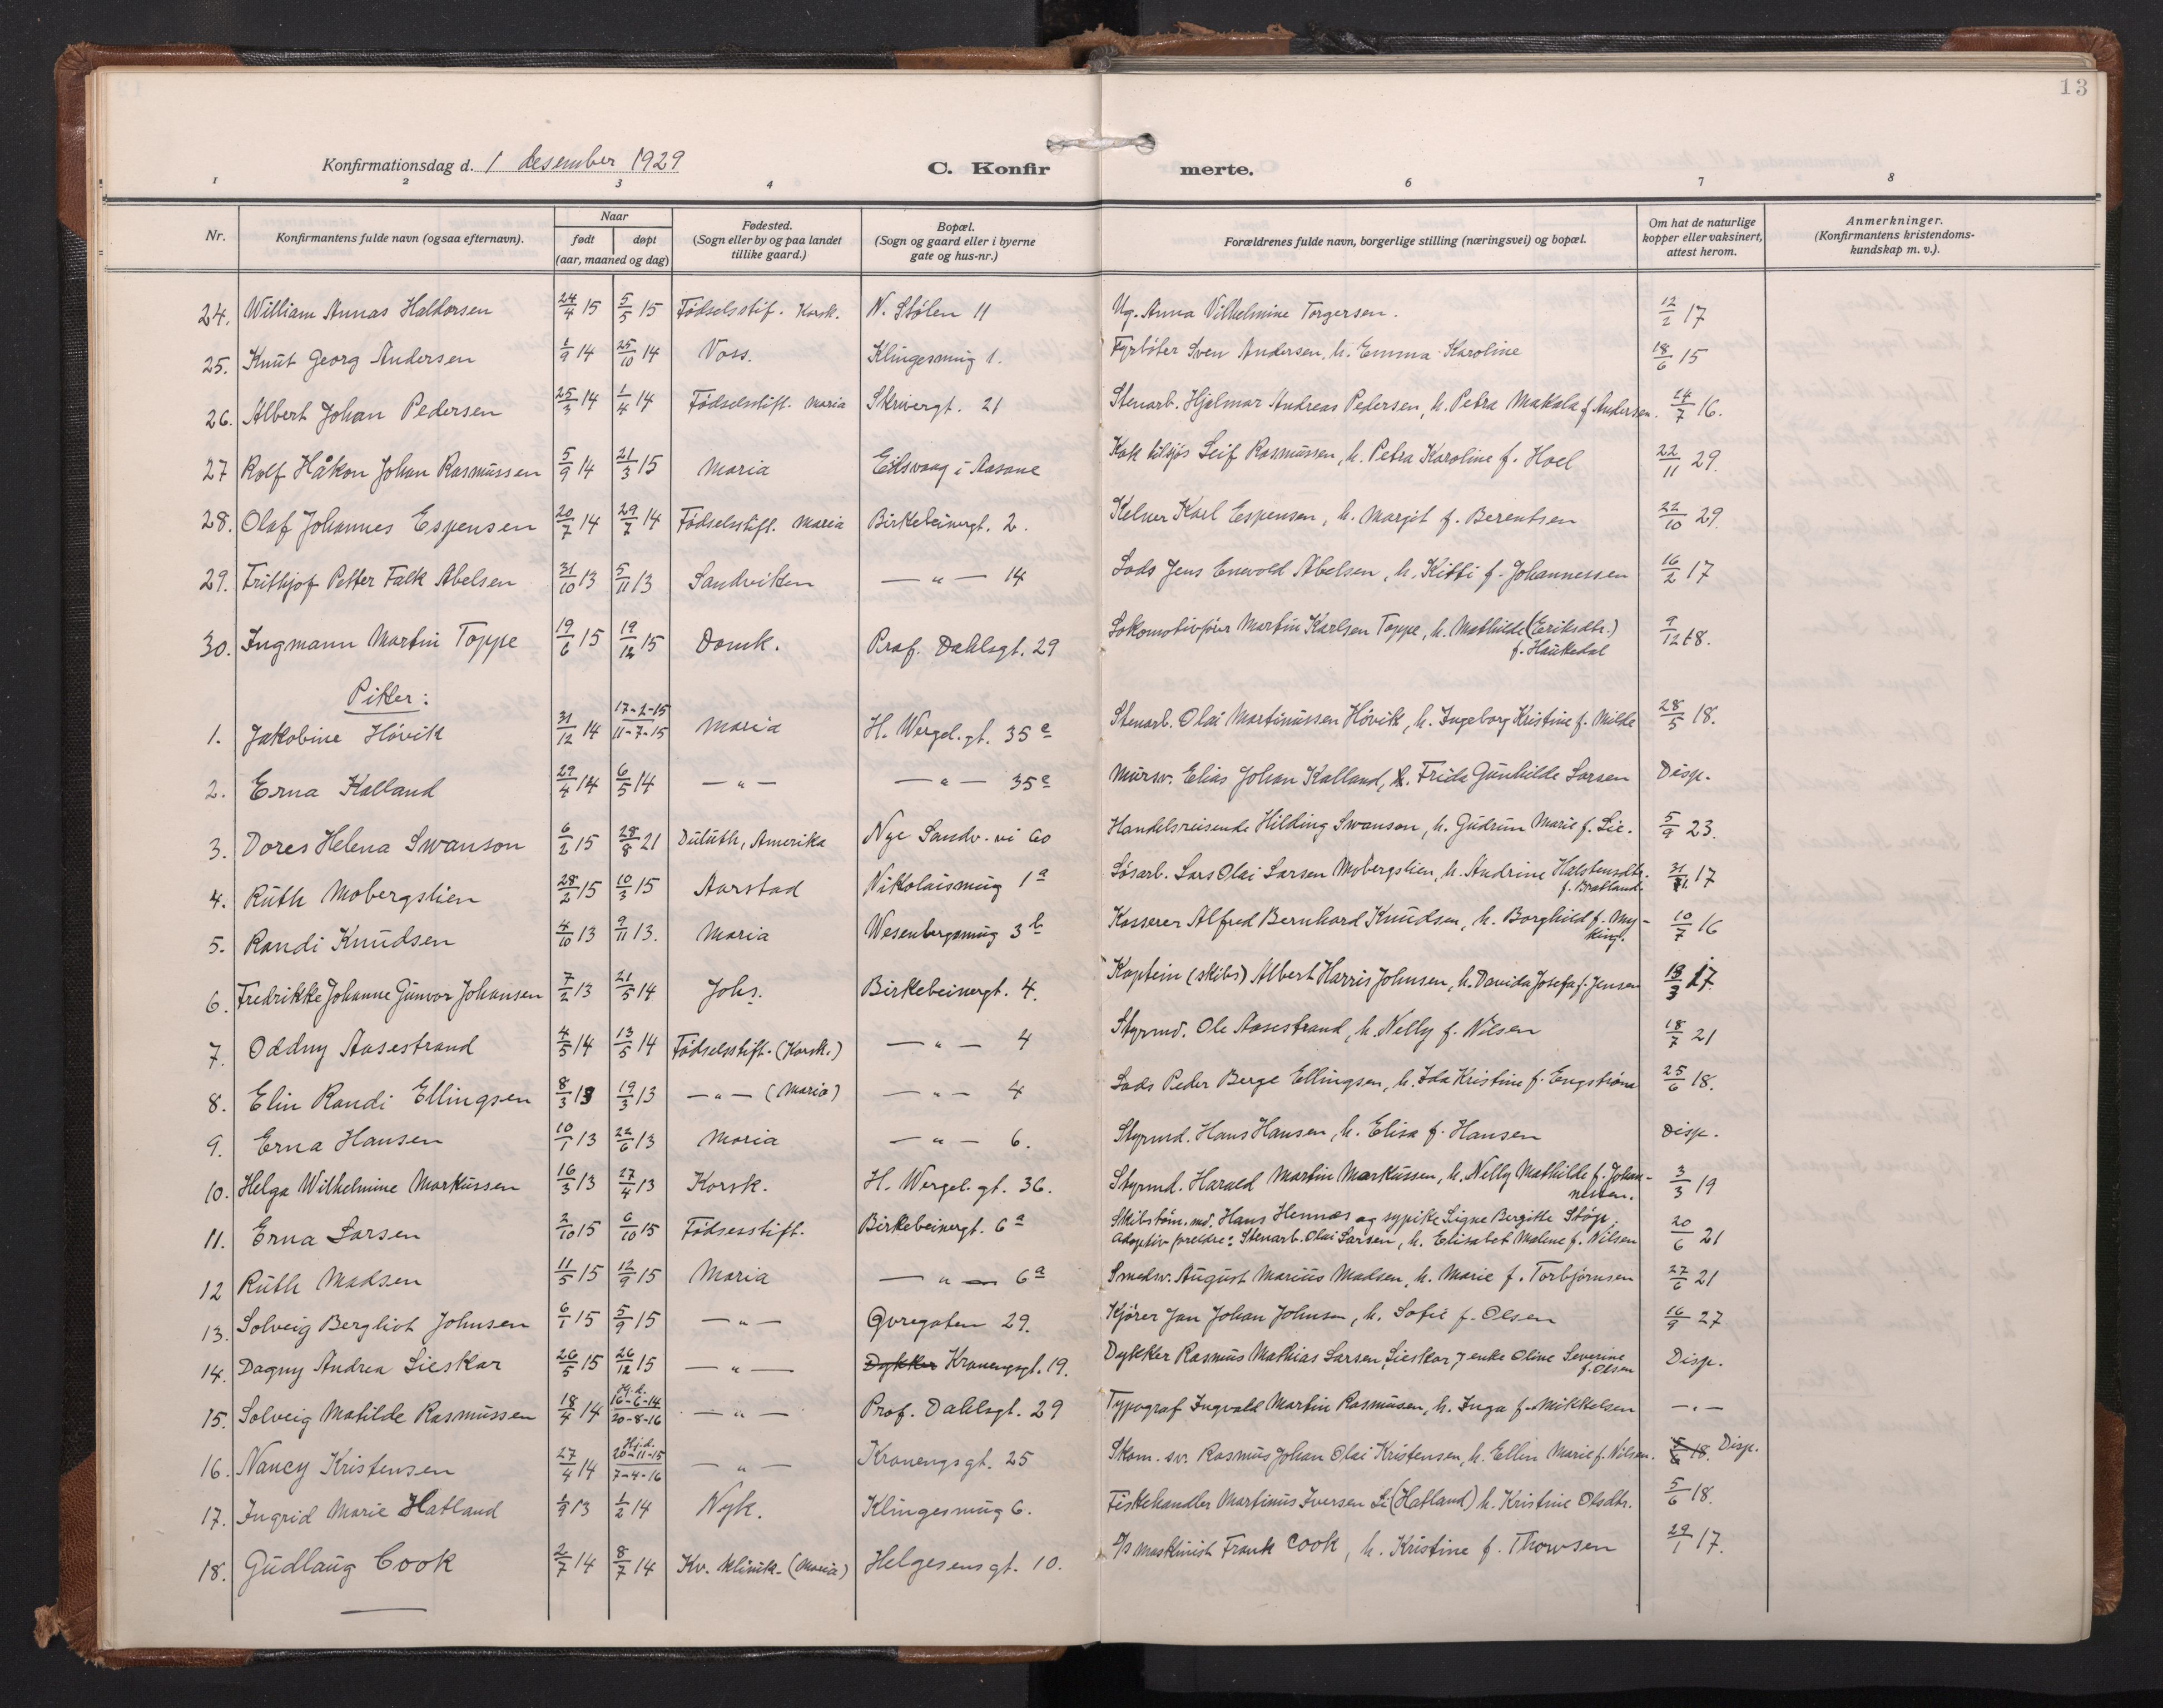 13
Konfirmationsdag d. 1 desember 1929
C. Konfirmerte.
1 2 3 4 6 7 8
Nr.
Konfirmantens fulde navn (ogsaa efternavn).
Naar
født døpt
(aar, maaned og dag)
Fødested.
(Sogn eller by og paa landet
tillike gaard.)
Bopæl.
(Sogn og gaard eller i byerne
gate og hus-nr.)
Forældrenes fulde navn, borgerlige stilling (næringsvei) og bopæl.
Om hat de naturlige
kopper eller vaksinert,
attest herom.
Anmerkninger.
(Konfirmantens kristendoms-
kundskap m. v.).
24. William Annas Haldorsen 24/4 15 5/5 15 Fødselsstif. Korsk. N. Stølen 11 Ug. Anna Vilhelmine Torgersen. 12/2 17
25. Knut Georg Andersen 1/9 14 25/10 14 Voss. Klingesmug 1. Fyrbøter Sven Andersen, h. Emma Karoline 18/6 15
26. Albert Johan Pedersen 25/3 14 1/4 14 Fødselsstift. Maria Skivergt. 21 Stenarb. Hjalmar Andreas Pedersen, h. Petra Makala f. Andersen. 14/7 16.
27 Rolf Håkon Johan Rasmussen 5/9 14 21/3 15 Maria Eilsvaag i Aasane Kok tilsjøs Leif Rasmussen, h. Petra Karoline f. Hoel 22/11 29.
28. Olaf Johannes Espensen 20/7 14 29/7 14 Fødselsstift. Maria Birkebeinergt. 2. Kelner Karl Espensen, h. Margit f. Berentsen 22/10 29.
29. Frithjof Petter Falk Abelsen 31/10 13 5/11 13 Sandviken — " — 14 Lods Jens Enevold Abelsen, h. Kitti f. Johannessen 16/2 17
30. Ingmann Martin Toppe 19/6 15 19/12 15 Domk. Prof. Dahlsgt. 29 Lokomotivfører Martin Karlsen Toppe, h. Mathilde (Eriksdtr.) 9/12 18.
f. Haukedal
Piker:
1. Jakobine Høvik 31/12 14 17-2-15 / 11-7-15 Maria H. Wergel. gt. 35 a Stenarb. Olai Martinussen Høvik, h. Ingeborg Kristine f. Milde 28/5 18.
2. Erna Kalland 29/4 14 6/5 14 — " — — " — 35 a Mursv. Elias Johan Kalland, h. Frida Gunhilde Larsen Disp.
3. Dores Helena Swanson 6/2 15 28/8 21 Duluth, Amerika Nye Sandv. vei 60 Handelsreisende Hilding Swanson, h. Gudrun Marie f. Lie. 5/9 23.
4. Ruth Mobergslien 28/2 15 10/3 15 Aarstad Nikolaismug 1 a Løsarb. Lars Olai Larsen Mobergslien, h. Andrine Halstensdtr. 31/1 17
f. Bratland.
5. Randi Knudsen 4/10 13 9/11 13. Maria Wesenbergsmug 3 b Kasserer Alfred Bernhard Knudsen, h. Borghild f. My- 10/7 16
king.
6. Fredrikke Johanne Gunvor Johansen 7/2 13 21/5 14 Johs. Birkebeinergt. 4. Kaptein (skibs) Albert Harris Johnsen, h. Davida Josefa f. Jensen 13/3 17.
7. Oddny Aasestrand 4/5 14 13/5 14 Fødselsstift. (Korsk.) — " — 4 Styrmd. Ole Aasestrand, h. Nelly f. Nilsen 18/7 21
8. Elin Randi Ellingsen 8/3 13 19/3 13 — " — (Maria) — " — 4 Lods Peder Berge Ellingsen, h. Ida Kristine f. Engstrøm 25/6 18.
9. Erna Hansen 10/1 13 22/6 13 Maria — " — 6. Styrmd. Hans Hansen, h. Elisa f. Hansen Disp.
10. Helga Wilhelmine Markussen 16/3 13 27/4 13 Korsk. H. Wergel. gt. 36. Styrmd. Harald Martin Markussen, h. Nelly Mathilde f. Johan- 3/3 19
nessen.
11. Erna Larsen 2/10 15 6/10 15 Fødsesstift. Birkebeinergt. 6 a Skibstøm. md. Hans Hennæs og sypike Signe Bergitte Støp, 20/6 21
Adoptiv foreldre: Stenarb. Olai Larsen, h. Elisabet Malene f. Nilsen
12 Ruth Madsen 11/5 15 12/9 15 Maria — " — 6 a Smedsv. August Marius Madsen, h. Marie f. Torbjørnsen 27/6 21
13. Solveig Bergliot Johnsen 6/1 15 5/9 15 — " — Øvregaten 29. Kjører Jan Johan Johnsen, h. Sofie f. Olsen 16/9 27
14. Dagny Andrea Lieskar 26/5 15 26/12 15 — " — Dykker Kronengsgt. 19. Dykker Rasmus Mathias Larsen Lieskar, enke Oline Severine Disp.
f. Olsen
15. Solveig Matilde Rasmussen 18/4 14 Hj.d. 16-6-14 / 20-8-16 — " — Prof. Dahlsgt. 29 Typograf Ingvald Martin Rasmusen, h. Inga f. Mikkelsen — " —
16. Nancy Kristensen 27/4 14 Hj.d. 20-11-15 / 7-4-16 — " — Kronengsgt. 25 Skom. sv. Rasmus Johan Olai Kristensen, h. Ellen Marie f. Nilsen. 5/6 18. Disp.
17. Ingrid Marie Hatland 1/9 13 1/2 14 Nyk. Klingesmug 6. Fiskehandler Martinus Iversen Li (Hatland) h. Kristine Olsdtr. 5/6 18.
18. Gudlaug Cook 2/7 14 8/7 14 Kv. klinik. (Maria) Helgesensgt. 10. Maskinist Frank Cook, h. Kristine f. Thowsen 29/1 17.